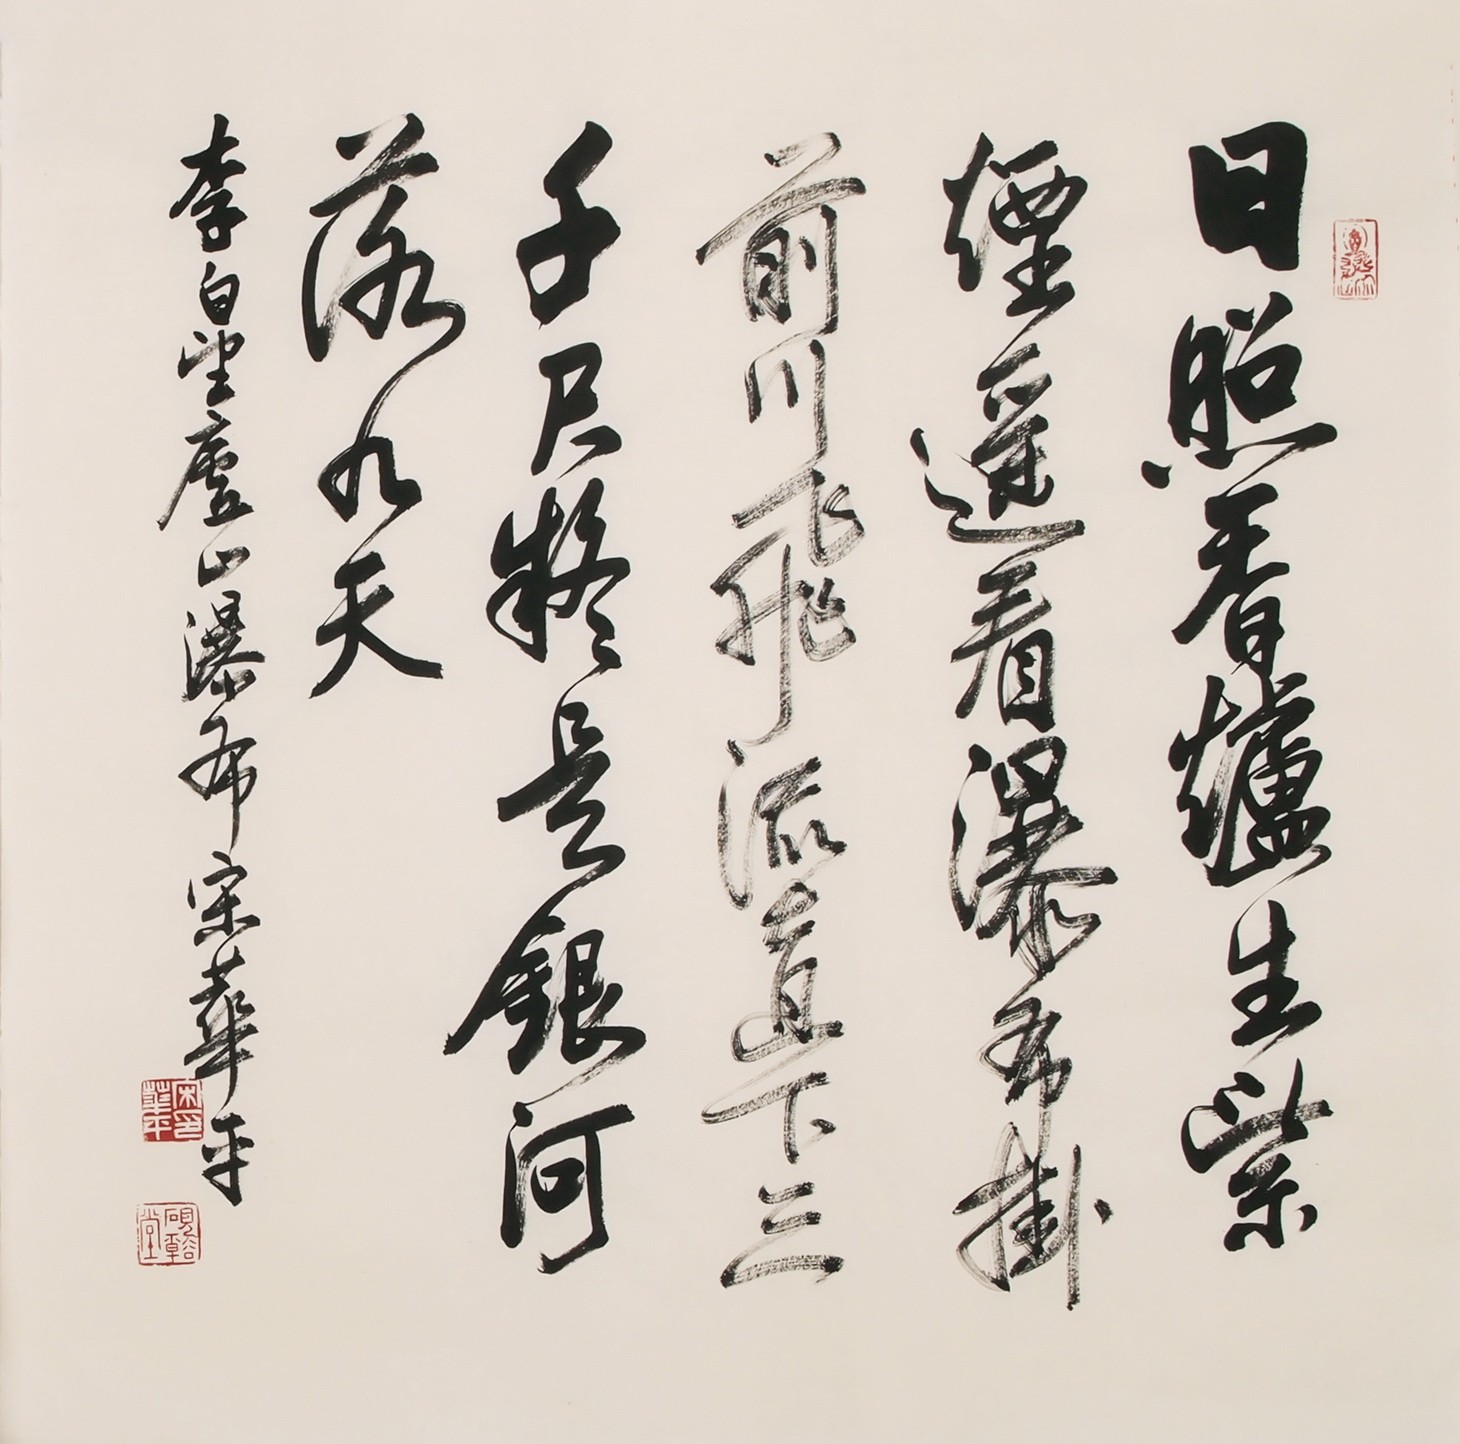 日照香爐生紫
煙遥看瀑布掛
前川飛流直下三
千尺疑是銀河
落九天
李白望廬山瀑布宋華平
宋華平印